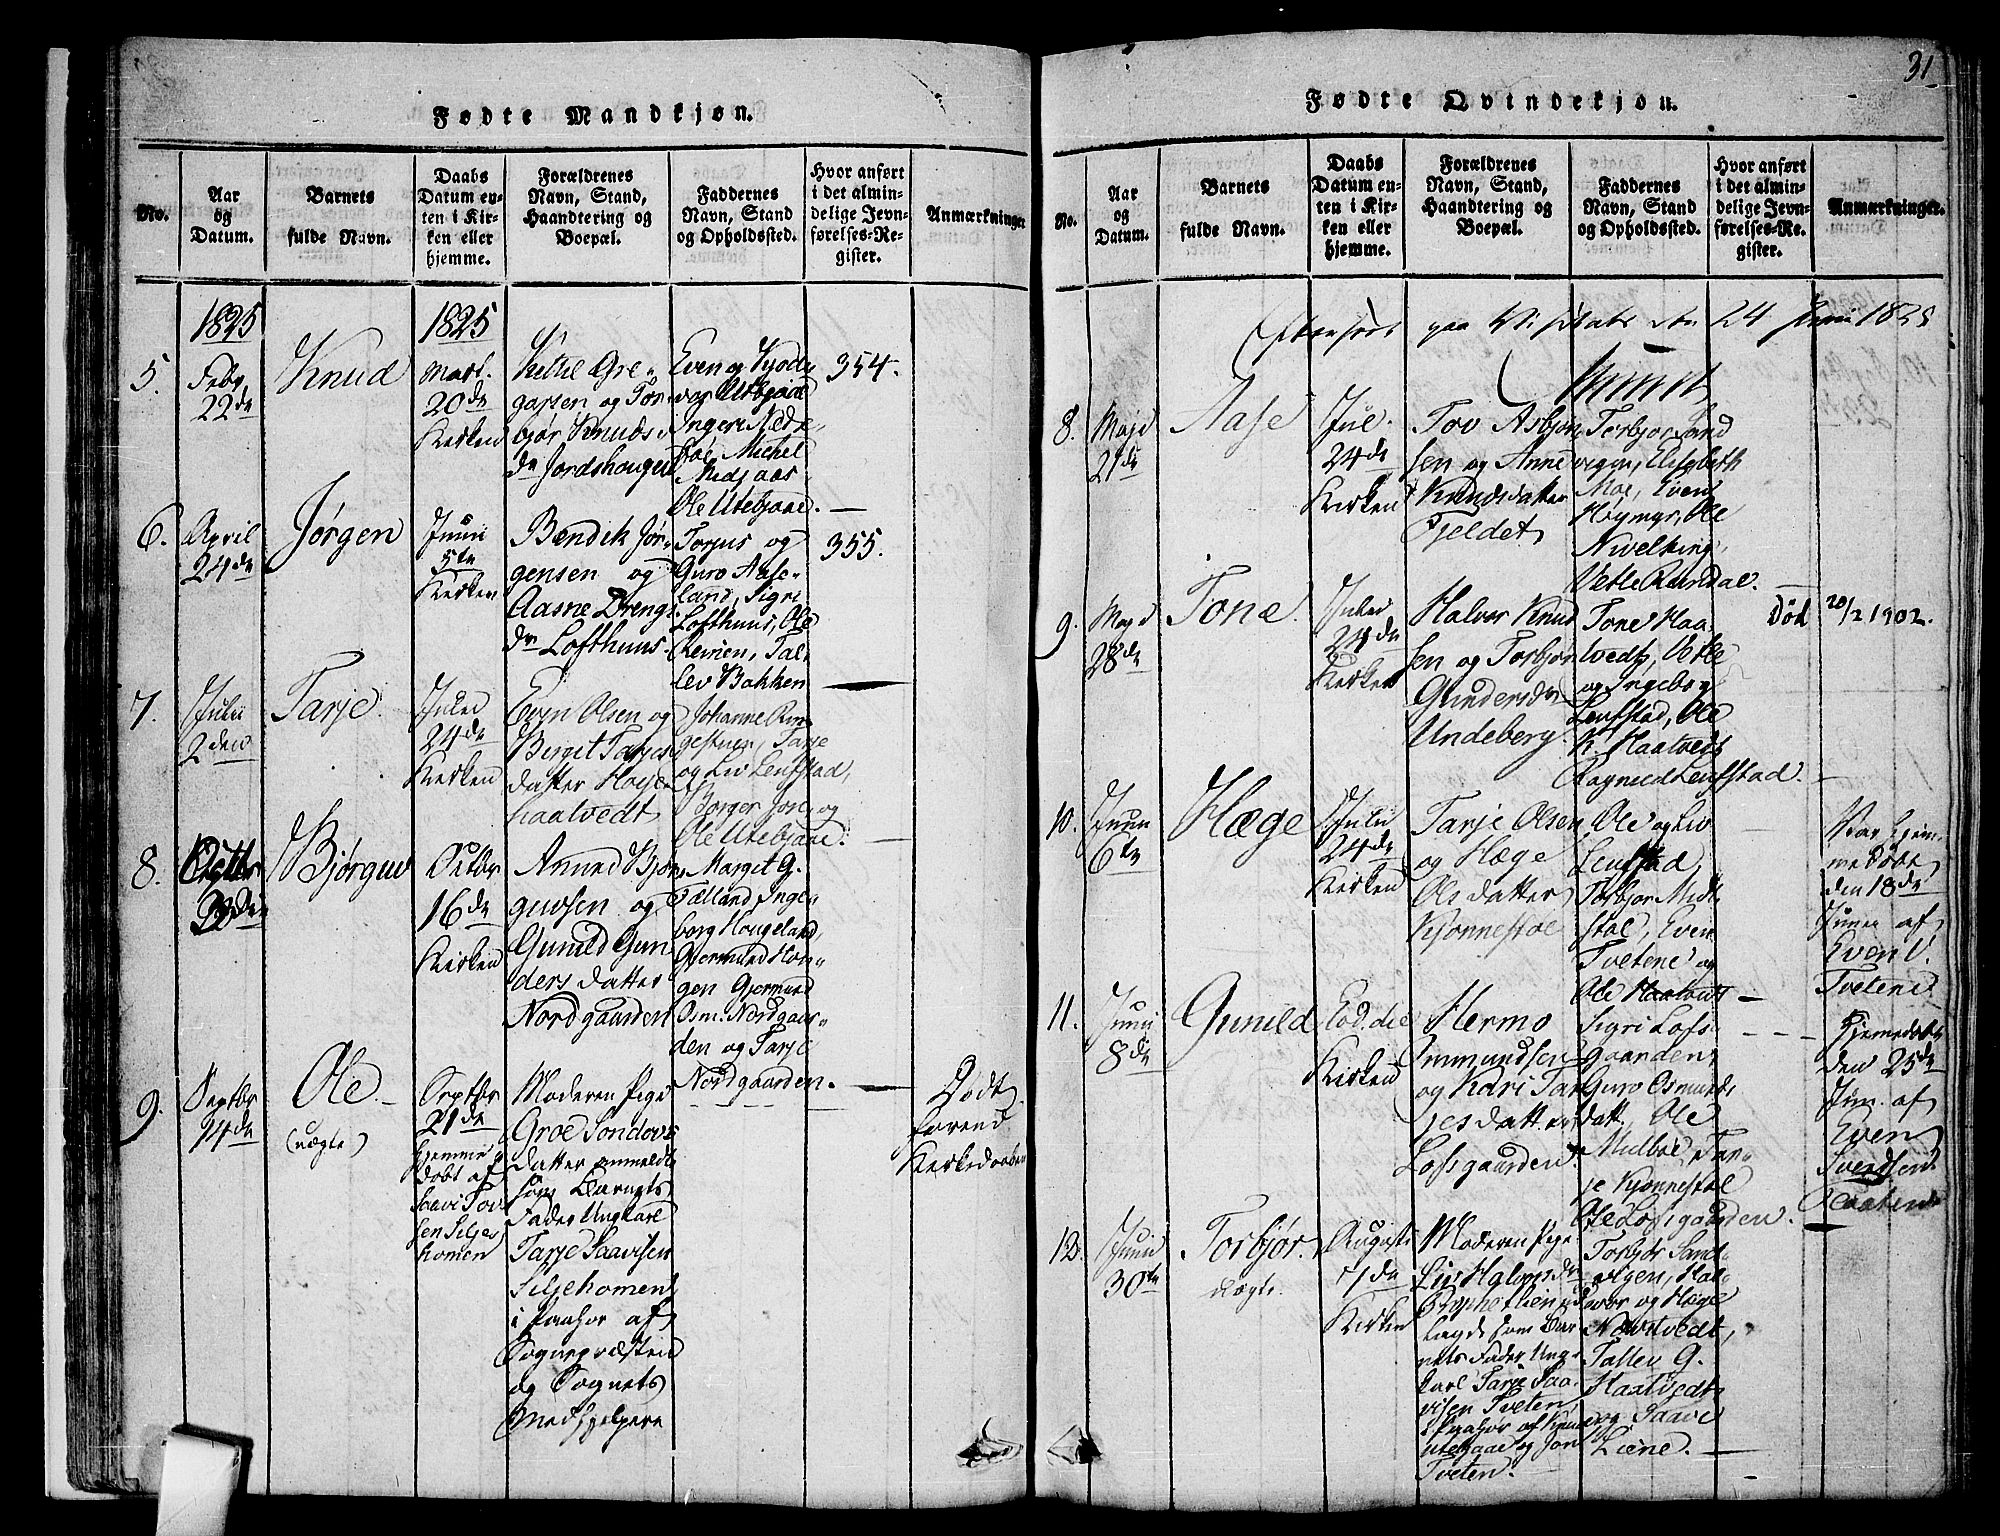 31
Fødte Mandkjøn.
No.
Aar
og
Datum.
Barnets
fulde Navn.
Daabs
Datum en-
ten i Kir-
ken eller
hjemme.
Forældrenes
Navn, Stand,
Haandtering og
Boepæl.
Faddernes
Navn, Stand
og Opholdssted.
Hvor anført
i det almin-
delige Jevn-
førelses-Re-
gister.
Anmærkninger
5.
1825
Febr
22de
Knud
1825
Mart.
20de
Kirken
Kittil Gre-
gassen og Tor-
bjør Knuds-
dr Jordshougen
Even og
Utebjaae
Ingeri Neds-
tøe, Michel
Ole Utebjaae.
354.
6.
April
24de
Jørgen
Junii
5te
Kirken
Bendik Jør-
gensen og
Aasne Drengs
dr Lofthuus.
Torjus og
Guro Aase-
land, Sigri
Lofthuus, Ole
Tal-
lev Bakken
355.
7.
Julii
2den
Tarje.
Julii
24de
Kirken
Even Olsen og
Birgit Tarjes
datter
haatvedt
Johanne Rin-
gestuen, Tarje
og Liv Leufstad,
Borger Jon, og
Ole Utebjaae.
8.
Bjørguv
Octbr
16de
Kirken
Amund Bjør-
guvsen og
Gunild Gun-
ders datter
Nordgaarden
Margit G.
Fælland, Inge-
borg Hougeland,
Gjermund Hou-
gen Gjermund
Osm. Nordgaar-
den og Tarje
Nordgaarden.
9.
Septbr
14de
Ole
(uægte)
Septbr
21de
hjemme
døbt af
Saavi Tov-
sen Silje-
homen
Moderen Pige
Groe Sondovs
datter anmeldt
som Barnets
Fader Ungkarl
Tarje Saavisen
Siljehomen
i Paahør af
Sognepræsten
og Sognets
Medhjelpere
Dødt
forend
Kirkedaaben
Fødte Qvindekjøn.
No.
Aar
og
Datum.
Barnets
fulde Navn.
Daabs
Datum en-
ten i Kir-
ken eller
hjemme.
Forældrenes
Navn, Stand,
Haandtering og
Boepæl.
Faddernes
Navn, Stand
og Opholdssted.
Hvor anført
i det almin-
delige Jevn-
førelses-Re-
gister.
Anmærkninger.
Efterseet paa Visitats den 24 Juni 1825
8.
Maji
21de
Aase
Jul.
24de
Kirken
Tov Asbjørn
sen og Anne
Knudsdatter
Fjeldet
Torbjør Sand
vigen, Elisabeth
Moe, Even
Høymyr, Ole
Vetle Rundal.
9.
Maji
28de
Tone
Julii
24de
Kirken
Halvor Knud
sen og Torbjør
Gundersdr
Undeberg.
Tone Haa-
tvedt, Vetle
og Ingeborg
Leufstad, Ole
K. Haatvedt
Ragnild Leufstad.
Død 20/2 1902.
10.
Junii
6te
Hæge
Julii
24de
Kirken
Tarje Olsen
og Hæge
Olsdatter
Kjønnestøe
Ole og Liv
Leufstad,
Torbjør Midt-
støl, Even
Tvetene og
Ole Haatvedt
Var hjem-
me døbt
den 18de
Junii af
Even V.
Tvetene
11.
Junii
8de
Gunild
Eod. die
Kirken
Hermo
Ommundsen
og Kari Tar
jesdatter
Lofsgaarden
Sigri Lofs-
gaarden,
Guro Osmunds
datt., Ole
Midbøe, Tar-
je Kjønnestøl
Ole Lofsgaarden.
Hjemedøbt
den 25de
Jun. af
Even
Svendsen
12.
Junii
30te
Torbjør.
Uægte.
Augusti
7de
Kirken
Moderen Pige
Liv Halvorsdr
lagde som Bar
nets Fader Ung-
karl Tarje Saa-
visen Tveten,
i Paahør af Knud
Utebjaae og Jon
Tveten.
Torbjør Sand-
vigen, Hal-
vor og Hæge
Nørstvedt,
Tallev G.
Haatvedt
og Saave
Liene.